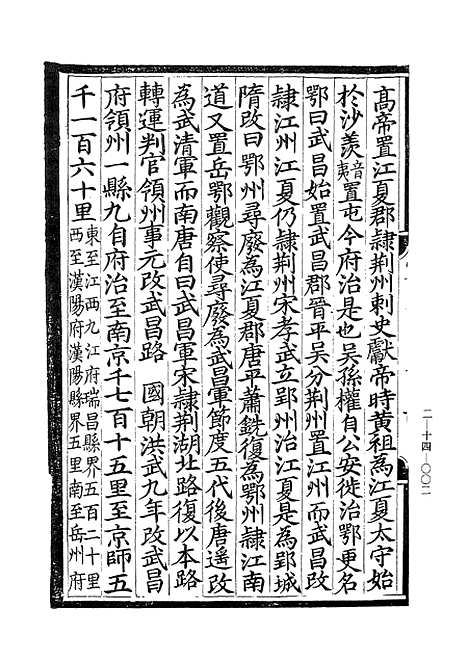 高帝置江夏郡隸荆州刺史獻帝時黄祖為江夏太守始
於沙羡音夷置屯今府治是也吴孫權自公安徙治鄂更名
鄂曰武昌始置武昌郡晉平吴分荆州置江州而武昌改
隸江州江夏仍隸荆州宋孝武立郢州治江夏是為郢城
隋改曰鄂州尋廢為江夏郡唐平蕭銑復為鄂州隸江南
道又置岳鄂觀察使尋廢為武昌軍節度五代後唐遥改
為武清軍而南唐自曰武昌軍宋隸荆湖北路復以本路
轉運判官領州事元改武昌路 國朝洪武九年改武昌
府領州一縣九自府治至南京千七百十五里至京師五
千一百六十里東至江西九江府瑞昌縣界五百二十里
西至漢陽府漢陽縣界五里南至岳州府
二—十四—〇〇二